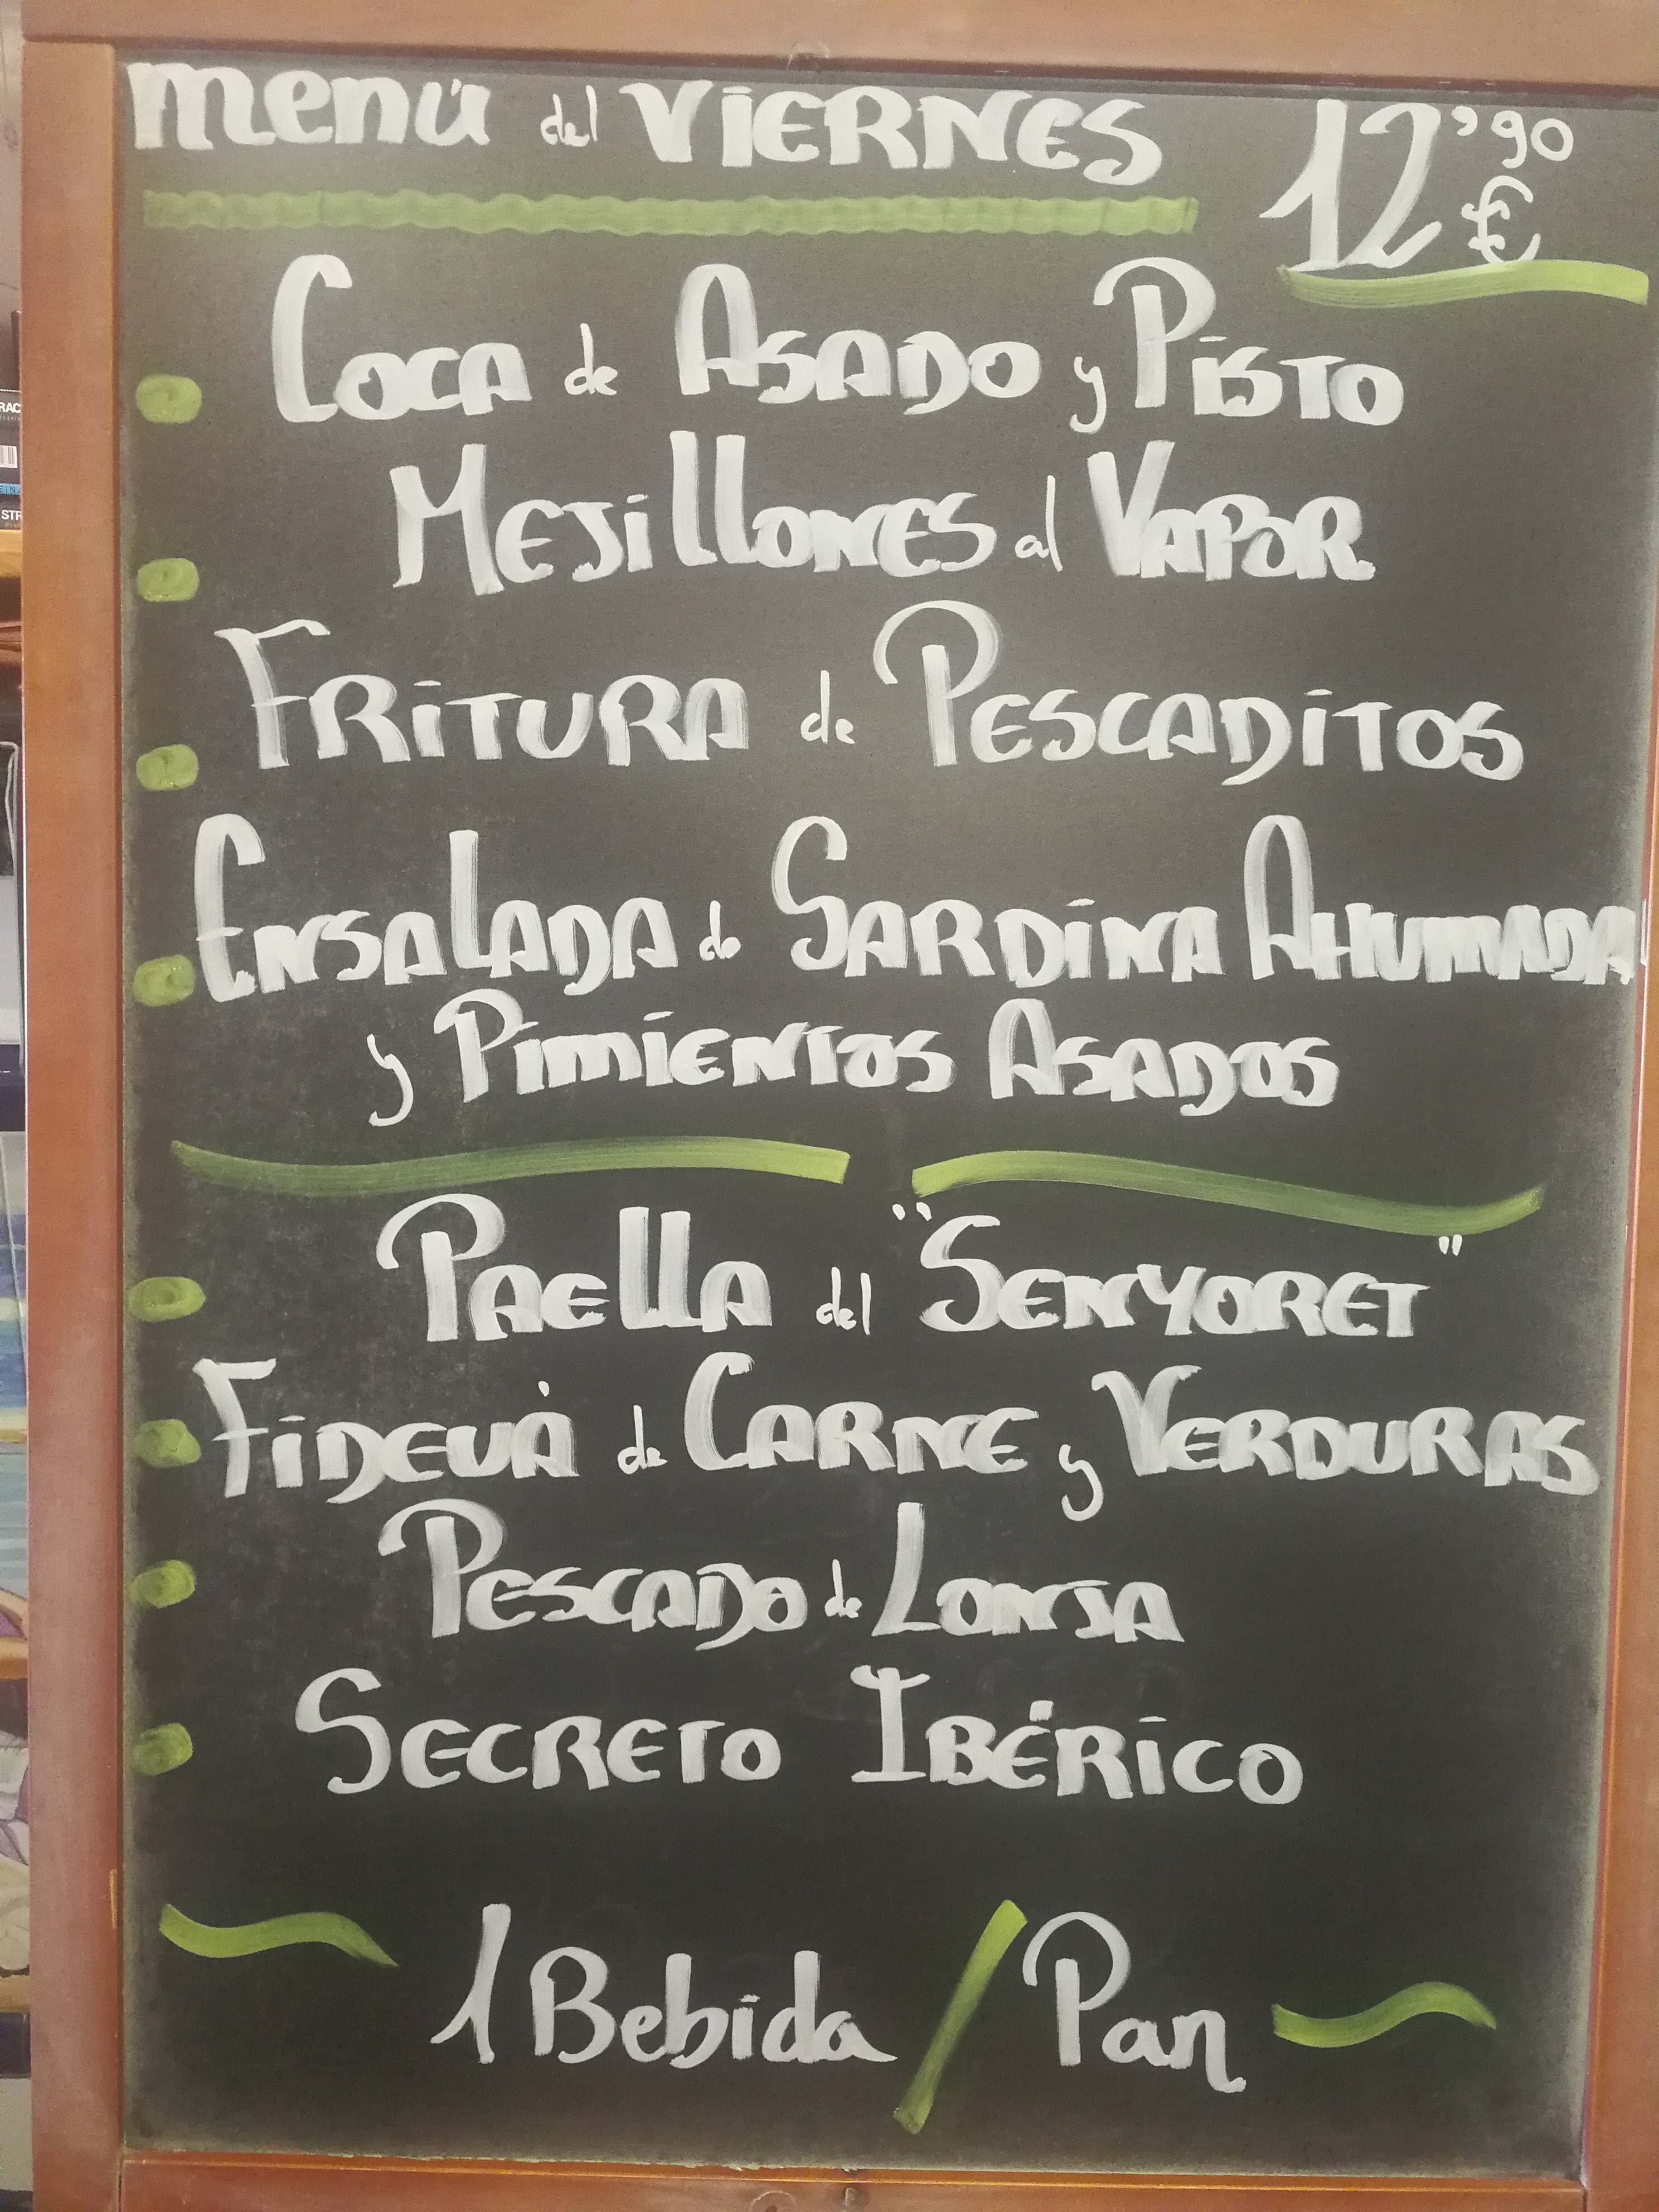 menú del VIERNES 12'90 €
COCA de ASADO y PISTO
MEJILLONES al VAPOR
FRITURA de PESCADITOS
ENSALADA de SARDINA AHUMADA
y PIMIENTOS ASADOS
PAELLA del "SENYORET"
FIDEUÀ de CARNE y VERDURAS
PESCADO de LONJA
SECRETO IBÉRICO
1 Bebida / Pan